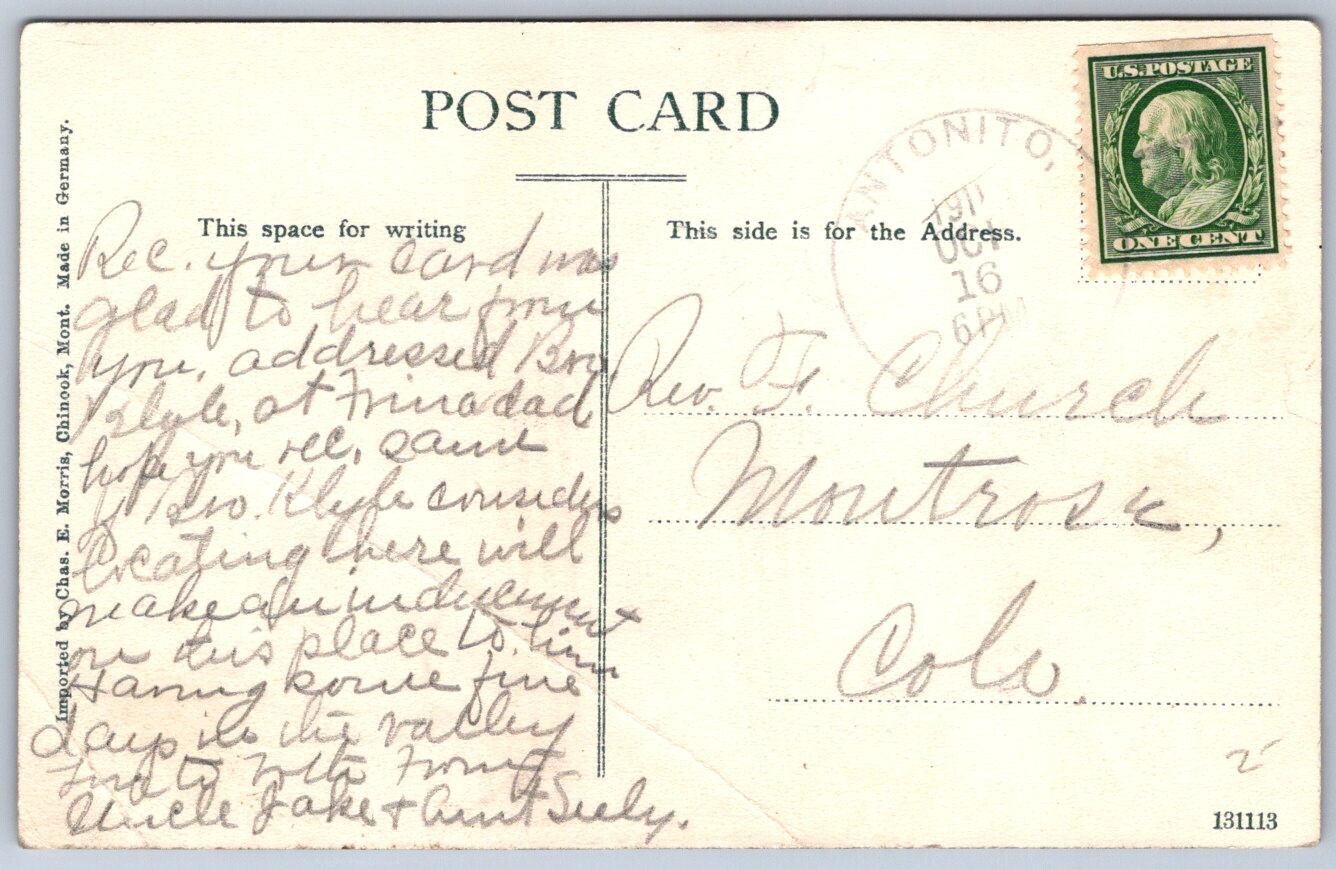 POST CARD
This space for writing
This side is for the Address.
Imported by Chas. E. Morris, Chinook, Mont. Made in Germany.
ANTONITO,
1911
OCT
16
6 PM
U.S. POSTAGE
ONE CENT
Rec. your card was
glad to hear from
you, addressed Bro
at Trinadad
hope you rec. same
if Bro. considers
locating here will
make an inducement
on this place to him
Having some fine
days in the valley
to both from
Uncle Jake + Aunt Seely.
Rev. F. Church
Montrose,
Colo.
131113